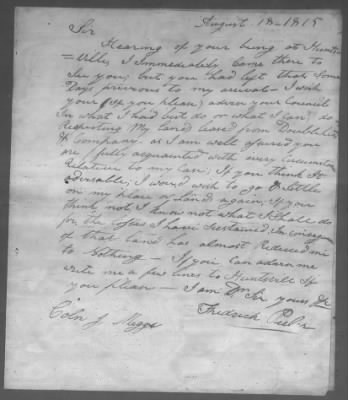 August 18 - 1815
Sir
Hearing of your being at Hunts=
=Ville, I Immediately Came there to
See you, but you had left that Some
Days previous to my arrival - I wish
your (if you please) advice your Council
In what I had best do or what I can do
Respecting My Land leased from Doublehead
& Company. as I am well assured you
are fully acquainted with every Circumstance
Relative to my Case; If you think It
advisable, I would wish to go & Settle
on my place of Land again, If you
think not I know not what I Shall do
for the losses I have Sustained In consequence
of that Land has almost Reduced me
to Nothing - If you Can advise me
write me a few lines to Huntsvill If
you please - I am Dr Sir yours &c
Fredrick
Coln J. Meigs